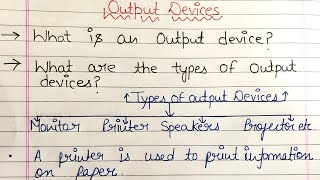 Output Devices
→ What is an Output device?
→ What are the types of Output
devices?
↑Types of output Devices↑
Monitor Printer Speakers Projector etc
• A printer is used to print information
on paper.